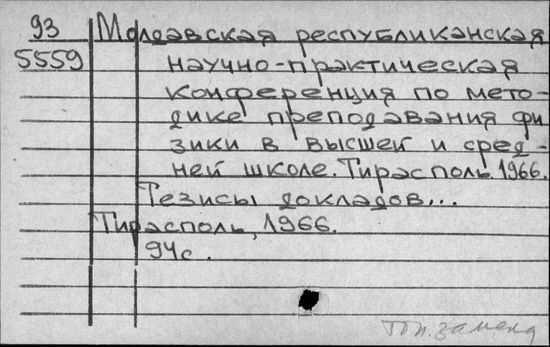 93 Молдавская республиканская
5559 научно-практическая
конференция по мето-
дике преподавания фи
зики в высшей и сред-
ней школе. Тирасполь. 1966.
Тезисы докладов...
Тирасполь, 1966.
94с.